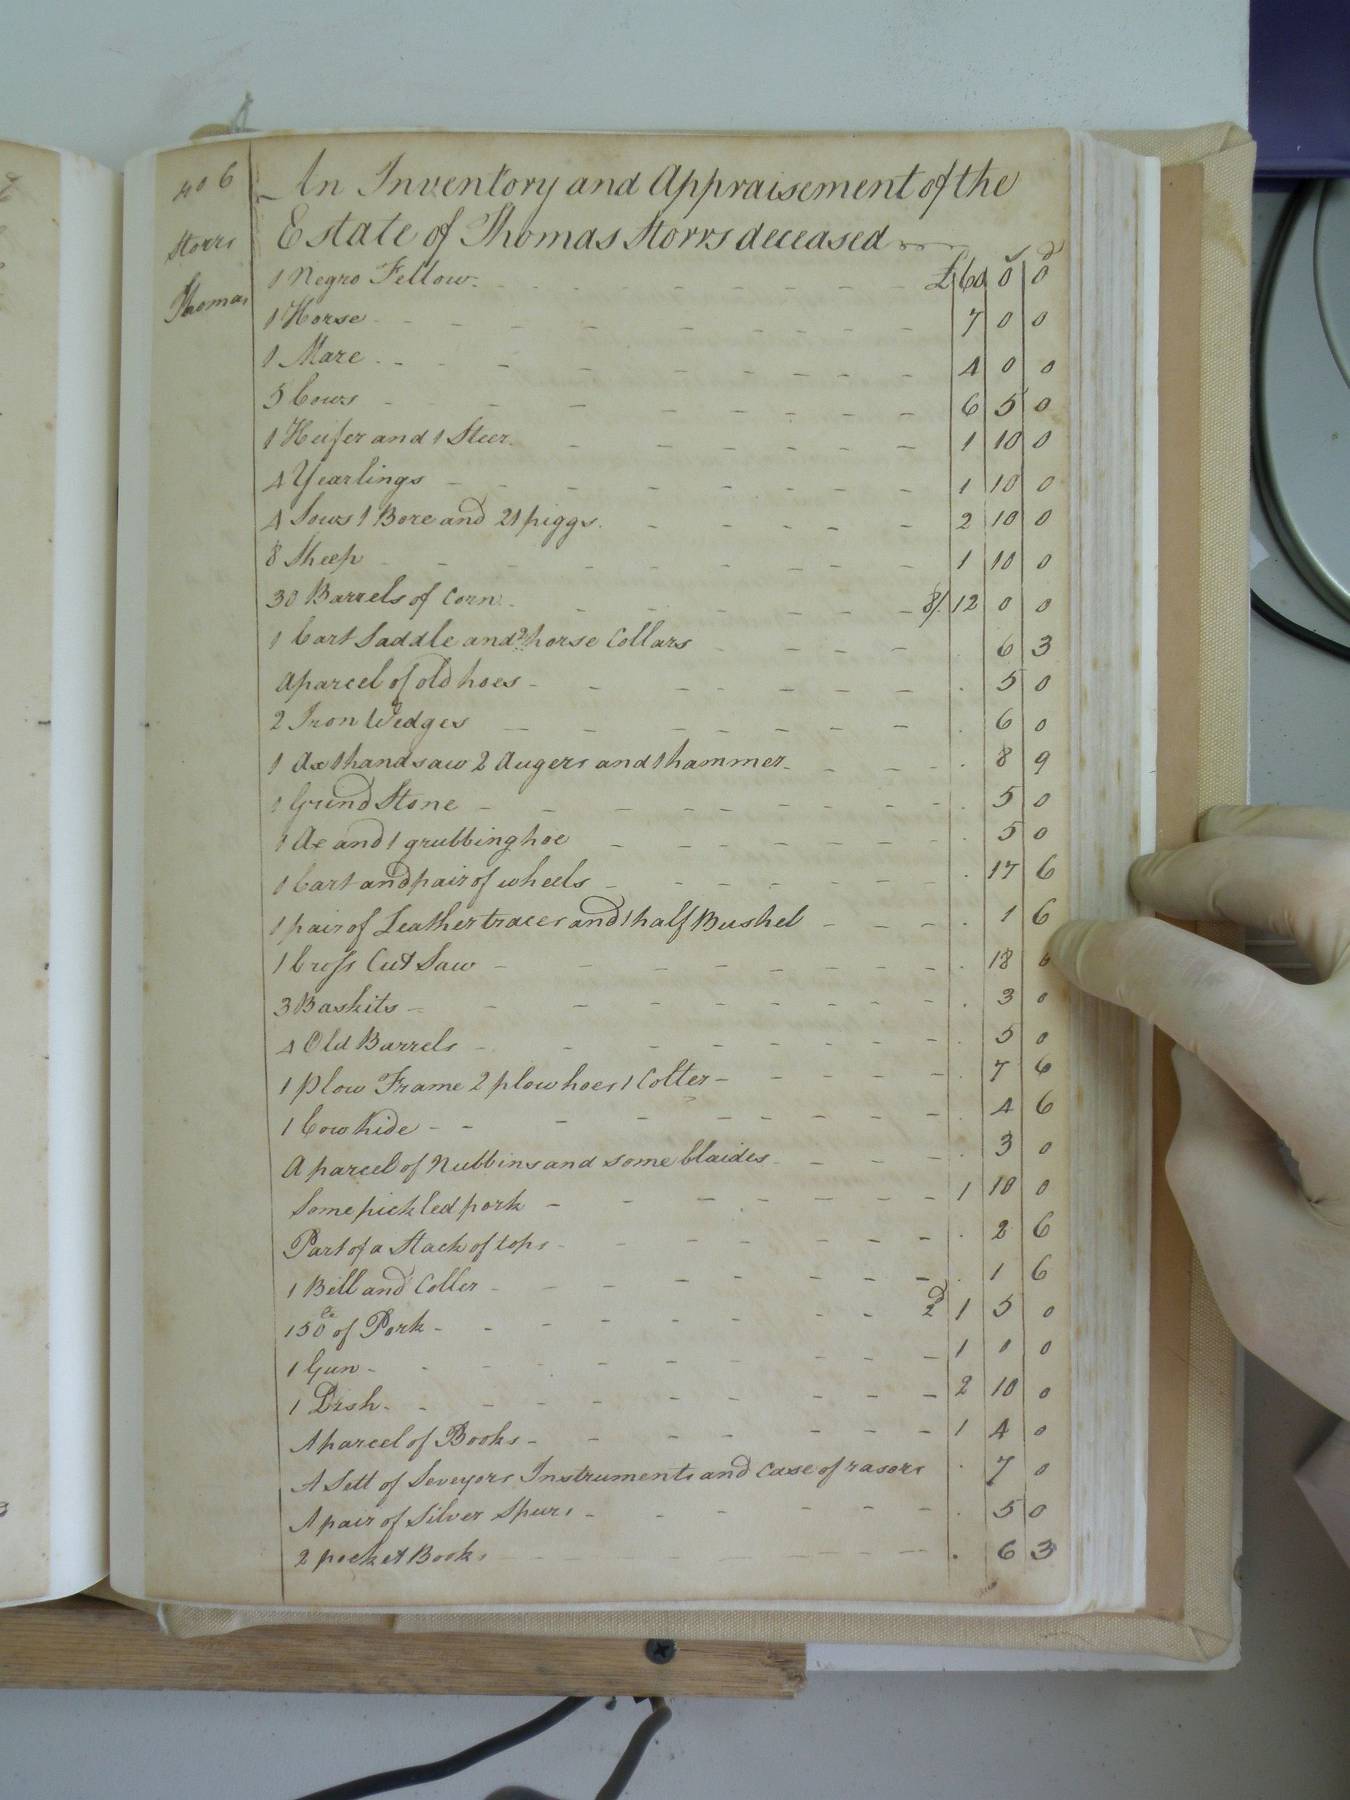 406
Storrs
Thomas
An Inventory and Appraisement of the
Estate of Thomas Storrs deceased
s d
1 Negro Fellow £ 60 0 0
1 Horse 7 0 0
1 Mare 4 0 0
5 Cows 6 5 0
1 Heifer and 1 Steer 1 10 0
4 Yearlings 1 10 0
4 Sows 1 Bore and 21 piggs 2 10 0
8 Sheep 1 10 0
30 Barrels of Corn 8/ 12 0 0
1 Cart Saddle and 2 horse Collars . 6 3
A parcel of old hoes . 5 0
2 Iron Wedges . 6 0
1 Ax 1 handsaw 2 Augers and 1 hammer . 8 9
1 Grind Stone . 5 0
1 Ax and 1 grubbing hoe . 5 0
1 Cart and pair of wheels . 17 6
1 pair of Leather traces and 1 half Bushel . 1 6
1 Cross Cut Saw . 18
3 Baskits . 3 0
4 Old Barrels 5 0
1 Plow Frame 2 plow hoes 1 Colter 7 6
1 Cow hide . 4 6
A parcel of Nubbins and some blaides . 3 0
Some pickled pork 1 10 0
Part of a Stack of tops . 2 6
1 Bell and Coller . 1 6
150 lb of Pork 2d 1 5 0
1 Gun 1 0 0
1 Desk 2 10 0
A parcel of Books 1 4 0
A Sett of Seveyors Instruments and case of rasors . 7 0
A pair of Silver Spurs . 5 0
2 pocket Books . 6 3